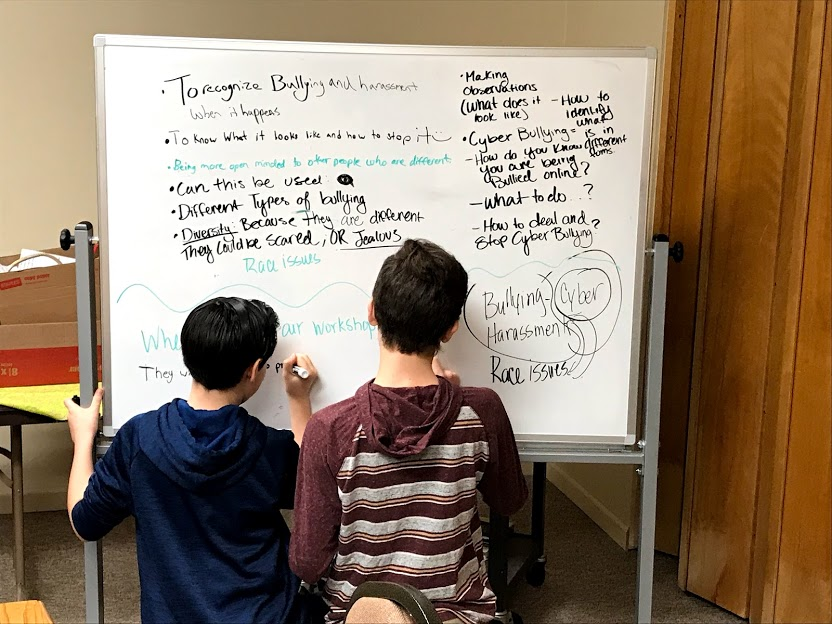 • To recognize Bullying and harassment
When it happens
• To Know What it looks like and how to stop it
• Being more open minded to other people who are different.
• Can this be used
• Different Types of bullying
• Diversity: Because they are different
They Could be scared, OR Jealous
Race issues
• Making
Observations
(What does it
look like)
- How to
identify
what
• Cyber Bullying = is in
different
forms
- How do you know
you are being
Bullied online?
- What to do..?
- How to deal and
Stop Cyber Bullying?
our workshop
They
Bullying - Cyber
Harassment
Race issues